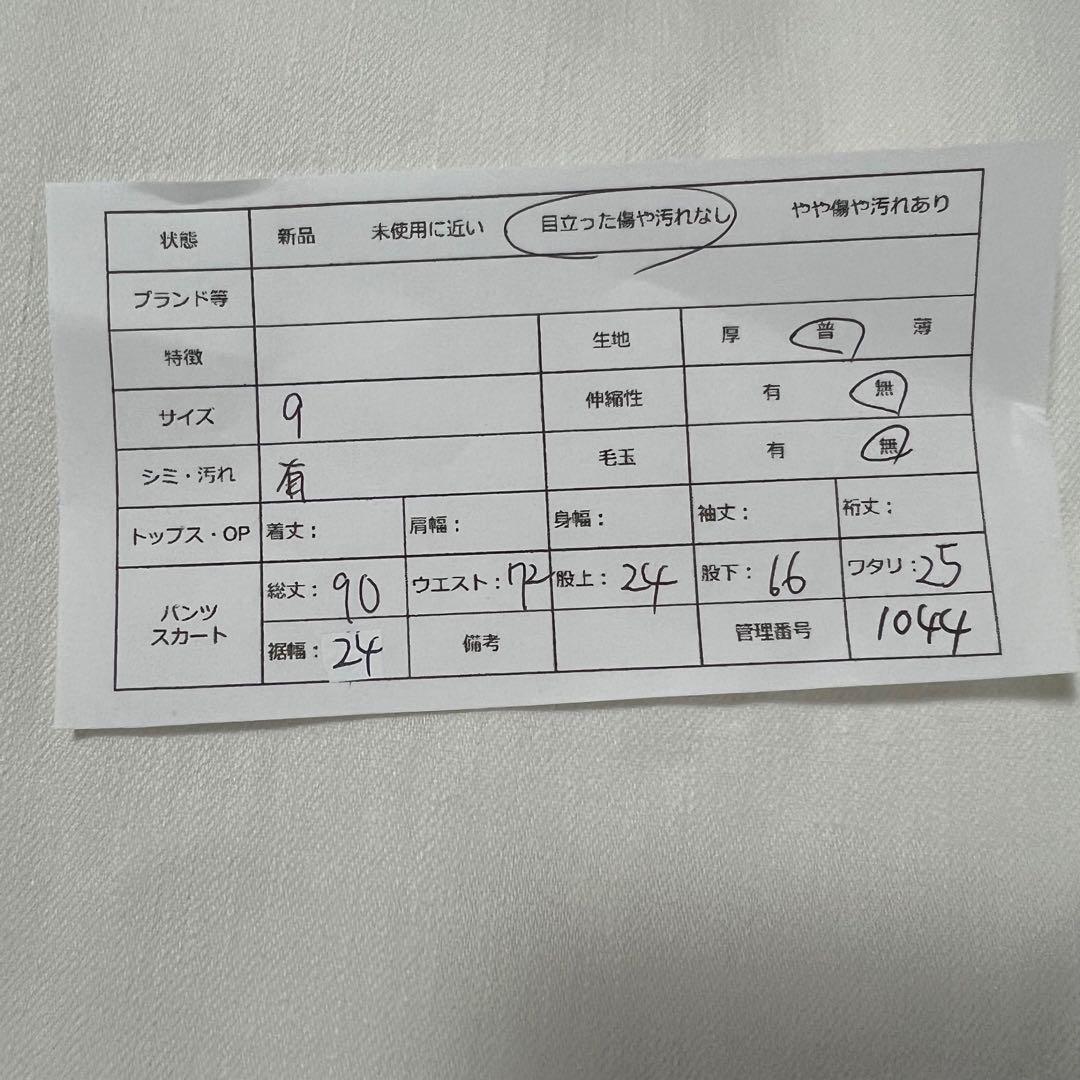 状態 新品 未使用に近い 目立った傷や汚れなし やや傷や汚れあり
ブランド等
特徴 生地 厚 普 薄
サイズ 9 伸縮性 有 無
シミ・汚れ 有 毛玉 有 無
トップス・OP 着丈: 肩幅: 身幅: 袖丈: 裄丈:
パンツ
スカート
総丈: 90 ウエスト: 72 股上: 24 股下: 66 ワタリ: 25
裾幅: 24 備考 管理番号 1044